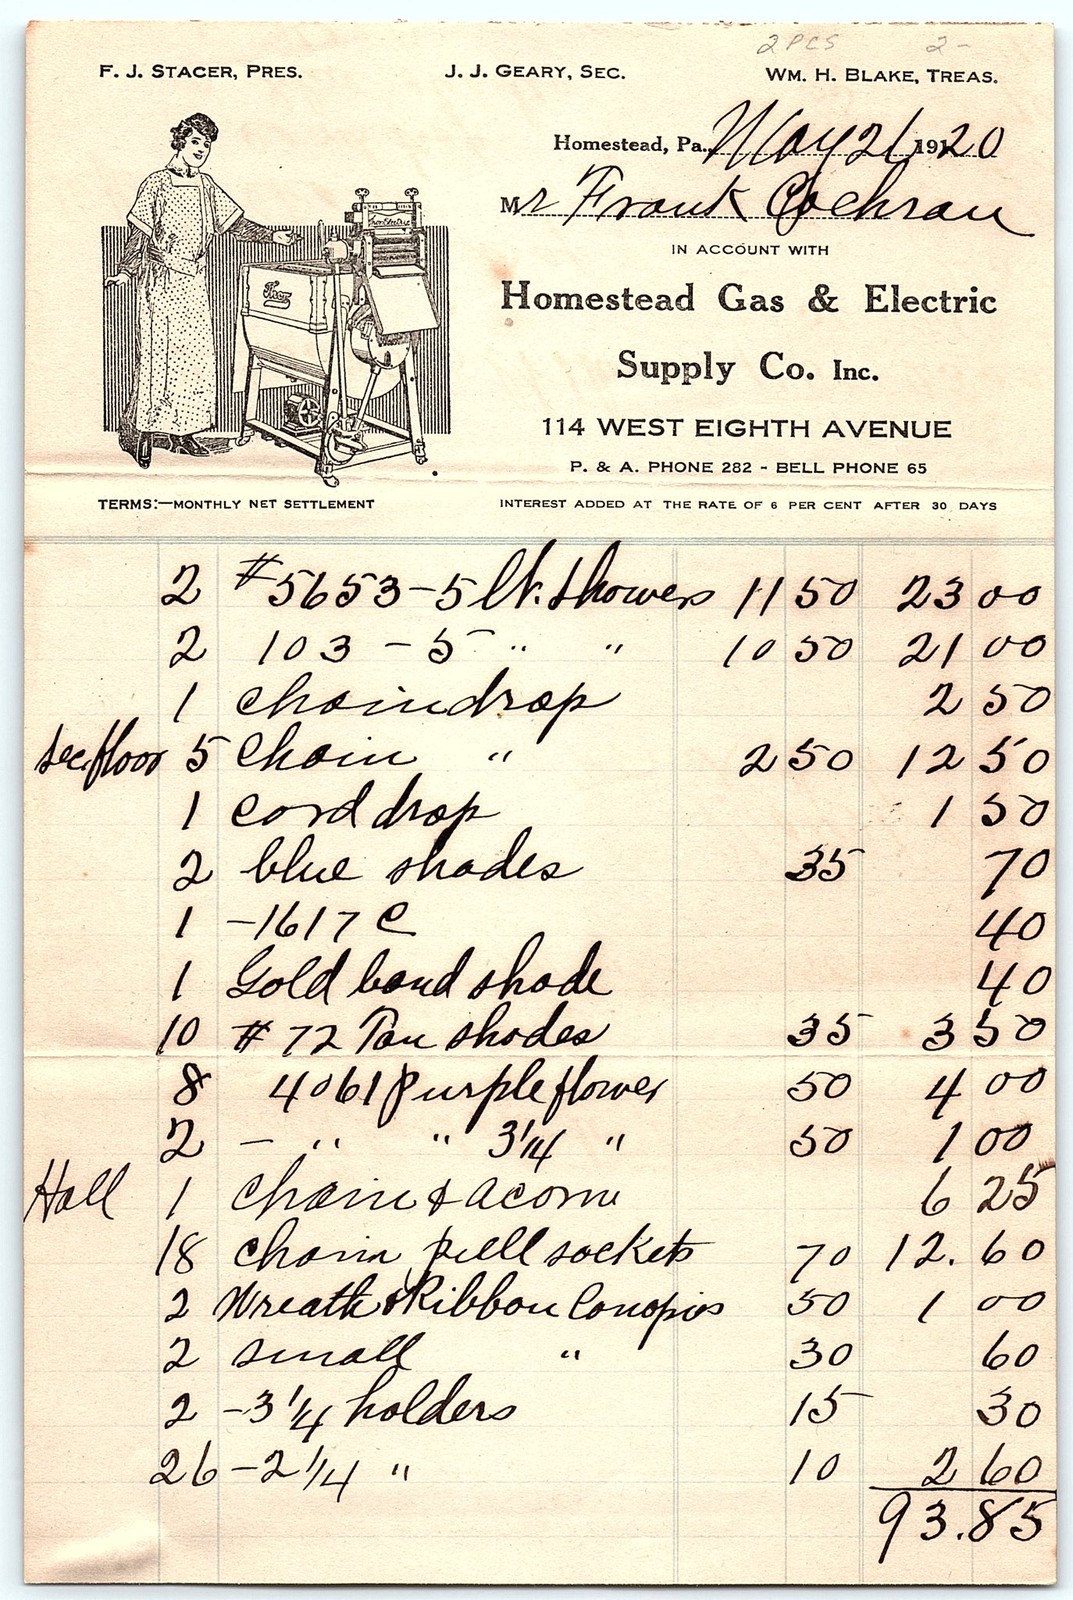 2 PCS 2-
F. J. STACER, PRES. J. J. GEARY, SEC. WM. H. BLAKE, TREAS.
Homestead, Pa., May 21 191 20
Mr Frank Cochran
IN ACCOUNT WITH
Homestead Gas & Electric
Supply Co. Inc.
114 WEST EIGHTH AVENUE
P. & A. PHONE 282 - BELL PHONE 65
Thor Electric
Thor
TERMS:—MONTHLY NET SETTLEMENT INTEREST ADDED AT THE RATE OF 6 PER CENT AFTER 30 DAYS
2 #5653-5 lt. showers 11 50 23 00
2 103 - 5 " " 10 50 21 00
1 chain drop 2 50
sec. floor 5 chain " 2 50 12 50
1 cord drop 1 50
2 blue shades 35 70
1 -1617 C 40
1 Gold band shade 40
10 #72 Tan shades 35 3 50
8 4061 Purple flower 50 4 00
2 - " " 3 1/4 " 50 1 00
Hall 1 chain & acorn 6 25
18 chain pull sockets 70 12.60
2 Wreath & Ribbon Canopies 50 1 00
2 small " 30 60
2 -3 1/4 holders 15 30
26 -2 1/4 " 10 2 60
93.85